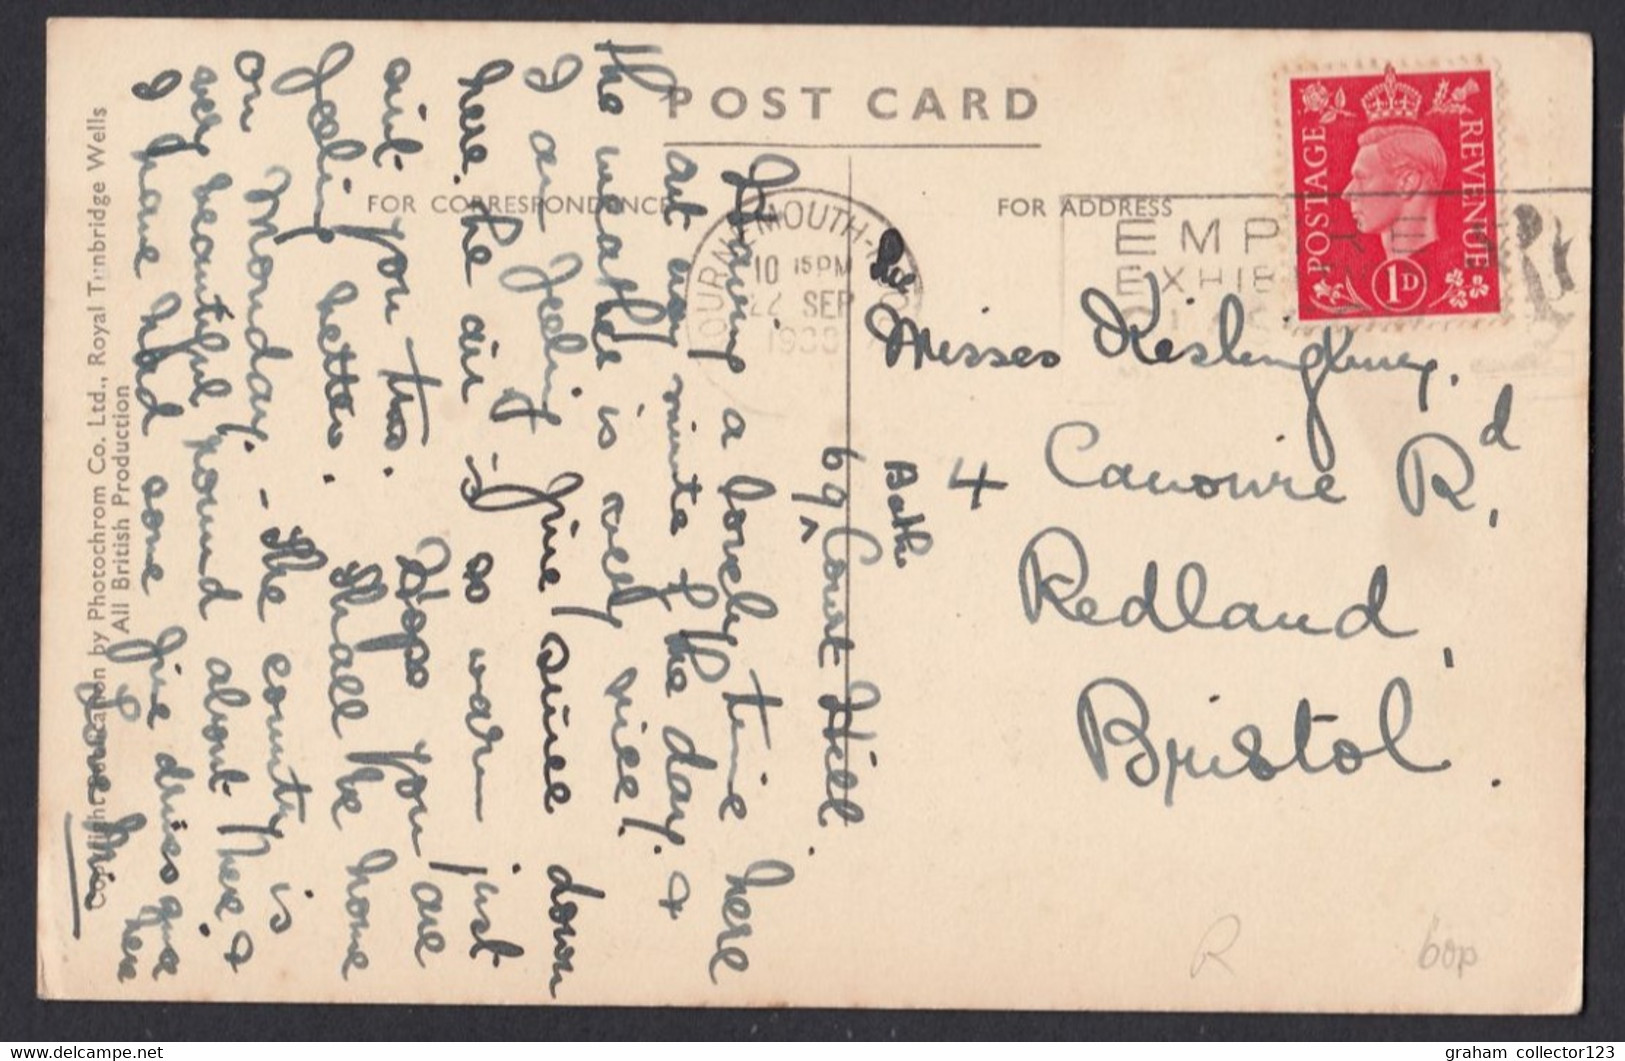 POST CARD
FOR CORRESPONDENCE
FOR ADDRESS
BOURNEMOUTH-
10 15 PM
22 SEP
1938
EMPIRE
EXHIBITION
POSTAGE
REVENUE
1D
The
Misses Keslingbury,
4 Canowie Rd,
Redland,
Bristol.
69 Court Hill.
Bath
Having a lovely time here
out every minute of the day. &
the weather is very nice!
I am feeling fine since down
here. the air is so warm just
suit you two. Hope you are
feeling better. Shall be home
on Monday. - The country is
very beautiful round about here. &
I have had some fine drives given here
Copyright Publication by Photochrom Co. Ltd., Royal Tunbridge Wells
All British Production
R
60p
graham collector123